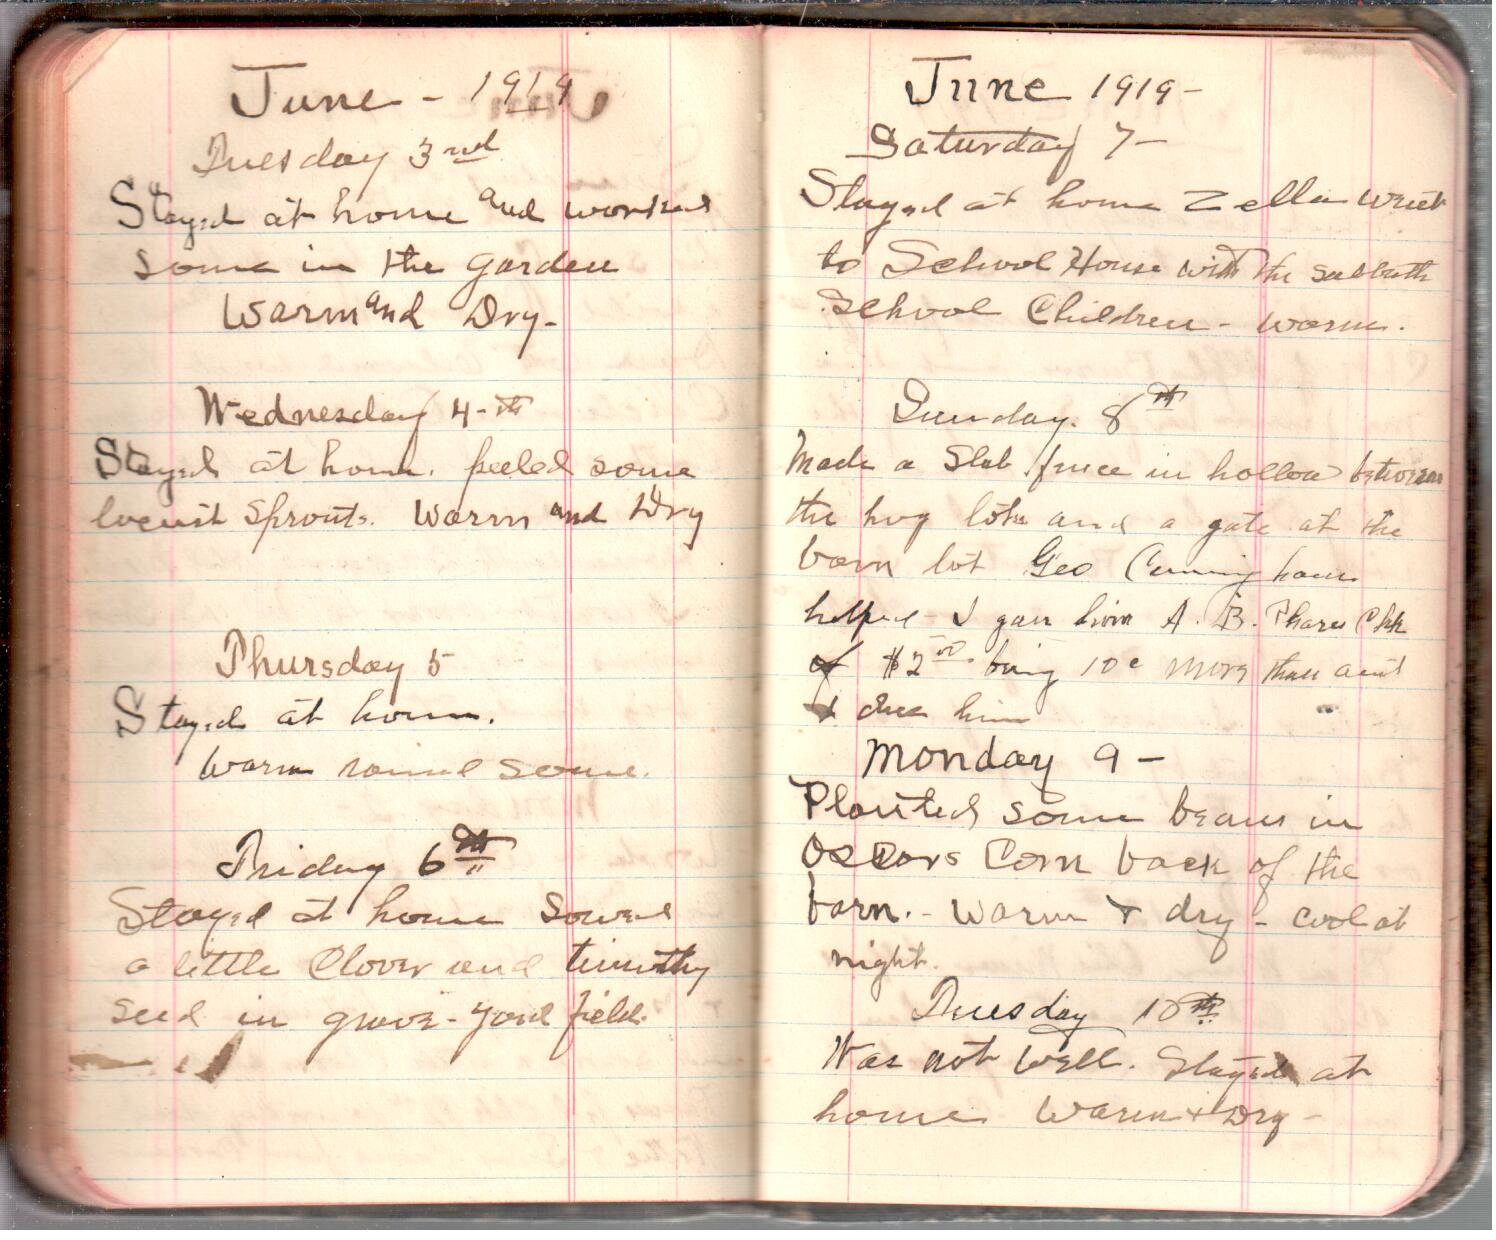 June - 1919
Tuesday 3rd
Stayed at home and worked
some in the garden
Warm and Dry-
Wednesday 4-th
Stayed at home. peeled some
locust sprouts. Warm and Dry
Thursday 5
Stayed at home.
Warm rained some.
Friday 6th
Stayed at home sowed
a little Clover and timothy
seed in grave-yard field.
June 1919-
Saturday 7-
Stayed at home Zella went
to School House with the Sabbath
School Children - warm.
Sunday. 8th
Made a Slab fence in hollow between
the hog lots and a gate at the
barn lot Geo Cunningham
helped - I gave him A. B. Phares Chk
of $2.00 being 10c more than
due him
Monday 9-
Planted some beans in
Oscars Corn back of the
barn. - Warm & dry - cool at
night.
Tuesday 10th
Was not well. Stayed at
home Warm & Dry-